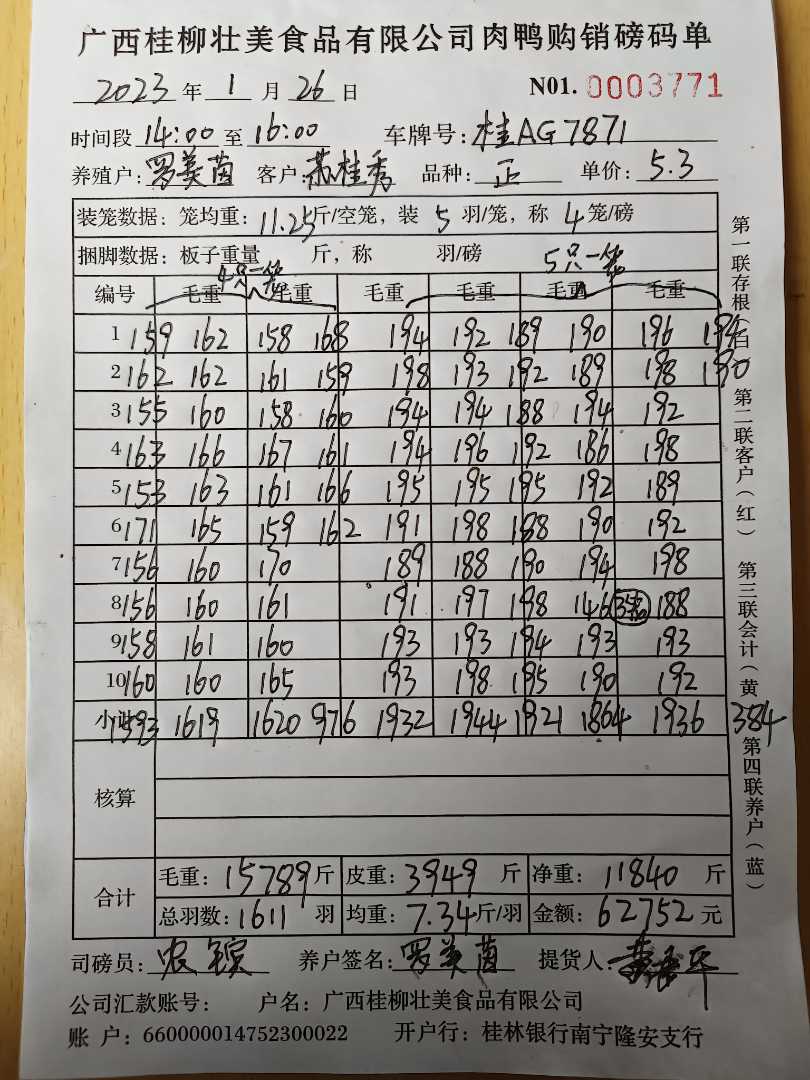 广西桂柳壮美食品有限公司肉鸭购销磅码单
2023 年 1 月 26 日 N01. 0003771
时间段 14:00 至 16:00 车牌号: 桂AG7871
养殖户: 罗美茵 客户: 苏桂秀 品种: 正 单价: 5.3
装笼数据: 笼均重: 11.25斤/空笼, 装 5 羽/笼, 称 4 笼/磅
捆脚数据: 板子重量 斤, 称 羽/磅
4只一笼 5只一笼
编号 毛重 毛重 毛重 毛重 毛重 毛重
1 159 162 158 168 194 192 189 190 196 194
2 162 162 161 159 198 193 192 189 198 190
3 155 160 158 160 194 194 188 194 192
4 163 166 167 161 194 196 192 186 198
5 153 163 161 166 195 195 195 192 189
6 171 165 159 162 191 198 188 190 192
7 156 160 170 189 188 190 194 198
8 156 160 161 191 197 198 146 3笼 188
9 158 161 160 193 193 194 193 193
10 160 160 165 193 198 195 190 192
小计 1593 1619 1620 976 1932 1944 1921 1864 1936 384
核算
合计 毛重: 15789斤 皮重: 3949 斤 净重: 11840 斤
总羽数: 1611 羽 均重: 7.34斤/羽 金额: 62752 元
司磅员: 农 养户签名: 罗美茵 提货人:
公司汇款账号: 户名: 广西桂柳壮美食品有限公司
账 户: 660000014752300022 开户行: 桂林银行南宁隆安支行
第一联存根(白) 第二联客户(红) 第三联会计(黄) 第四联养户(蓝)